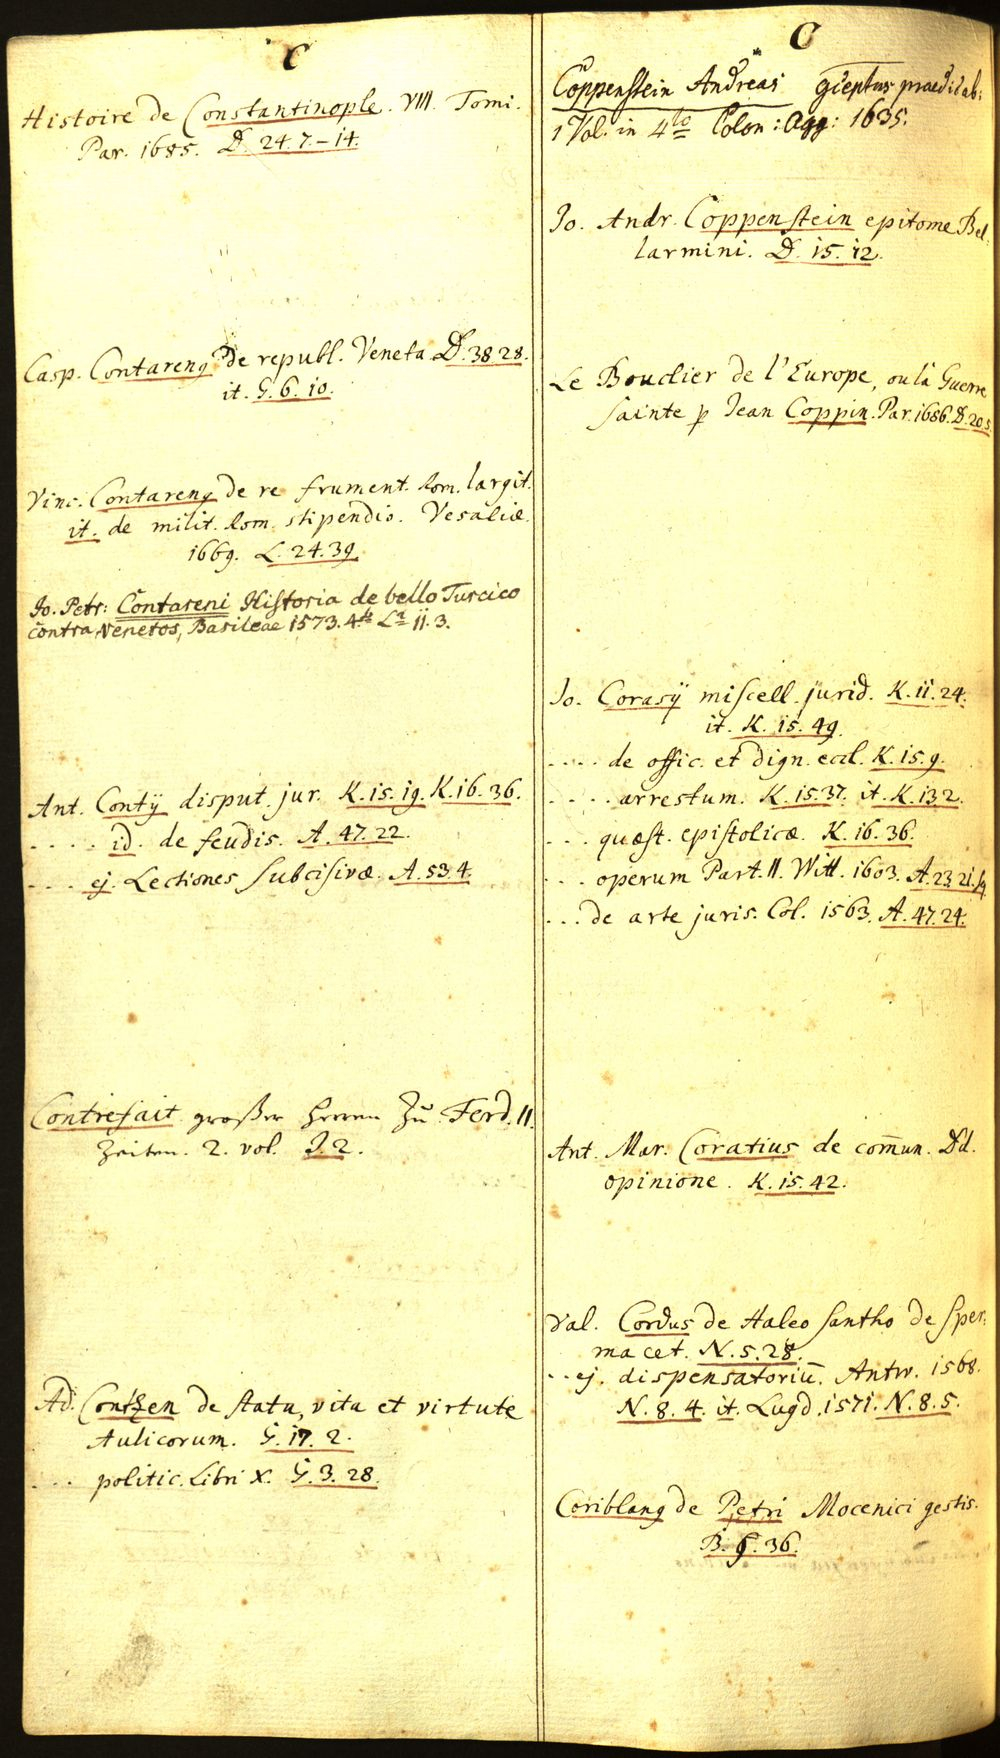 C
Histoire de Constantinople. VIII. Tomi.
Par. 1685. D. 24.7.-14.
Casp. Contareny de republ. Veneta. D. 38 28.
it. G. 6. 10.
Vinc. Contareny de re frument. Rom. largit.
it. de milit. Rom. stipendio. Vesaliæ.
1669. L. 24. 39.
Jo. Petr: Contareni Historia de bello Turcico
contra Venetos, Basileae 1573. 4to La 11. 3.
Ant. Contÿ disput. jur. K. 15. 19. K. 16. 36.
.... id. de feudis. A. 47. 22.
.... ej. Lectiones Subcisivæ. A. 53. 4.
Contrefait großer Herren Zu Ferd. II.
Zeiten. 2. vol. J. 2.
Ad. Contzen de statu, vita et virtute
Aulicorum. G. 17. 2.
... politic. Libri X. G. 3. 28.
C
Coppenstein Andreas praedicab:
1 Vol: in 4to Colon: Agg: 1635.
Jo. Andr. Coppenstein epitome Bel:
larmini. D. 15. 12.
Le Bouclier de l'Europe, ou la Guerre
sainte p Jean Coppin. Par. 1686. D. 20 5.
Jo. Corasÿ miscell. jurid. K. 11. 24.
it. K. 15. 49.
.... de offic. et dign. eccl. K. 15. 9.
.... arrestum. K. 15. 37. it. K. 13 2.
... quæst. epistolicæ. K. 16. 36.
... operum Part. II. Witt. 1603. A. 23. 21.
... de arte juris. Col. 1563. A. 47. 24.
Ant. Mar. Coratius de com̄un. Dd.
opinione. K. 15. 42.
Val. Cordus de Haleo santho de sper:
ma cet. N. 5. 28.
.. ej. dispensatoriū. Antw. 1568.
N. 8. 4. it. Lugd. 1571. N. 8. 5.
Coriblang de Petri Mocenici gestis.
B. 9. 36.